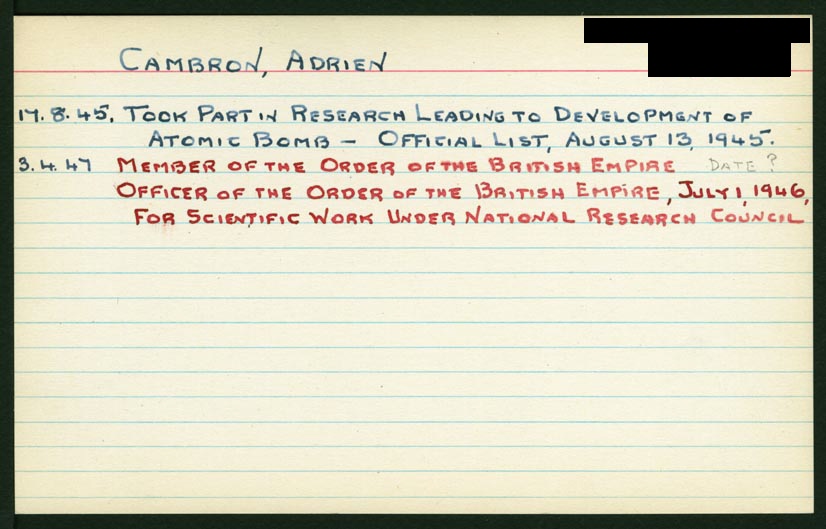 CAMBRON, ADRIEN
17.8.45. TOOK PART IN RESEARCH LEADING TO DEVELOPMENT OF
ATOMIC BOMB – OFFICIAL LIST, AUGUST 13, 1945.
3.4.47 MEMBER OF THE ORDER OF THE BRITISH EMPIRE DATE?
OFFICER OF THE ORDER OF THE BRITISH EMPIRE, JULY 1, 1946,
FOR SCIENTIFIC WORK UNDER NATIONAL RESEARCH COUNCIL